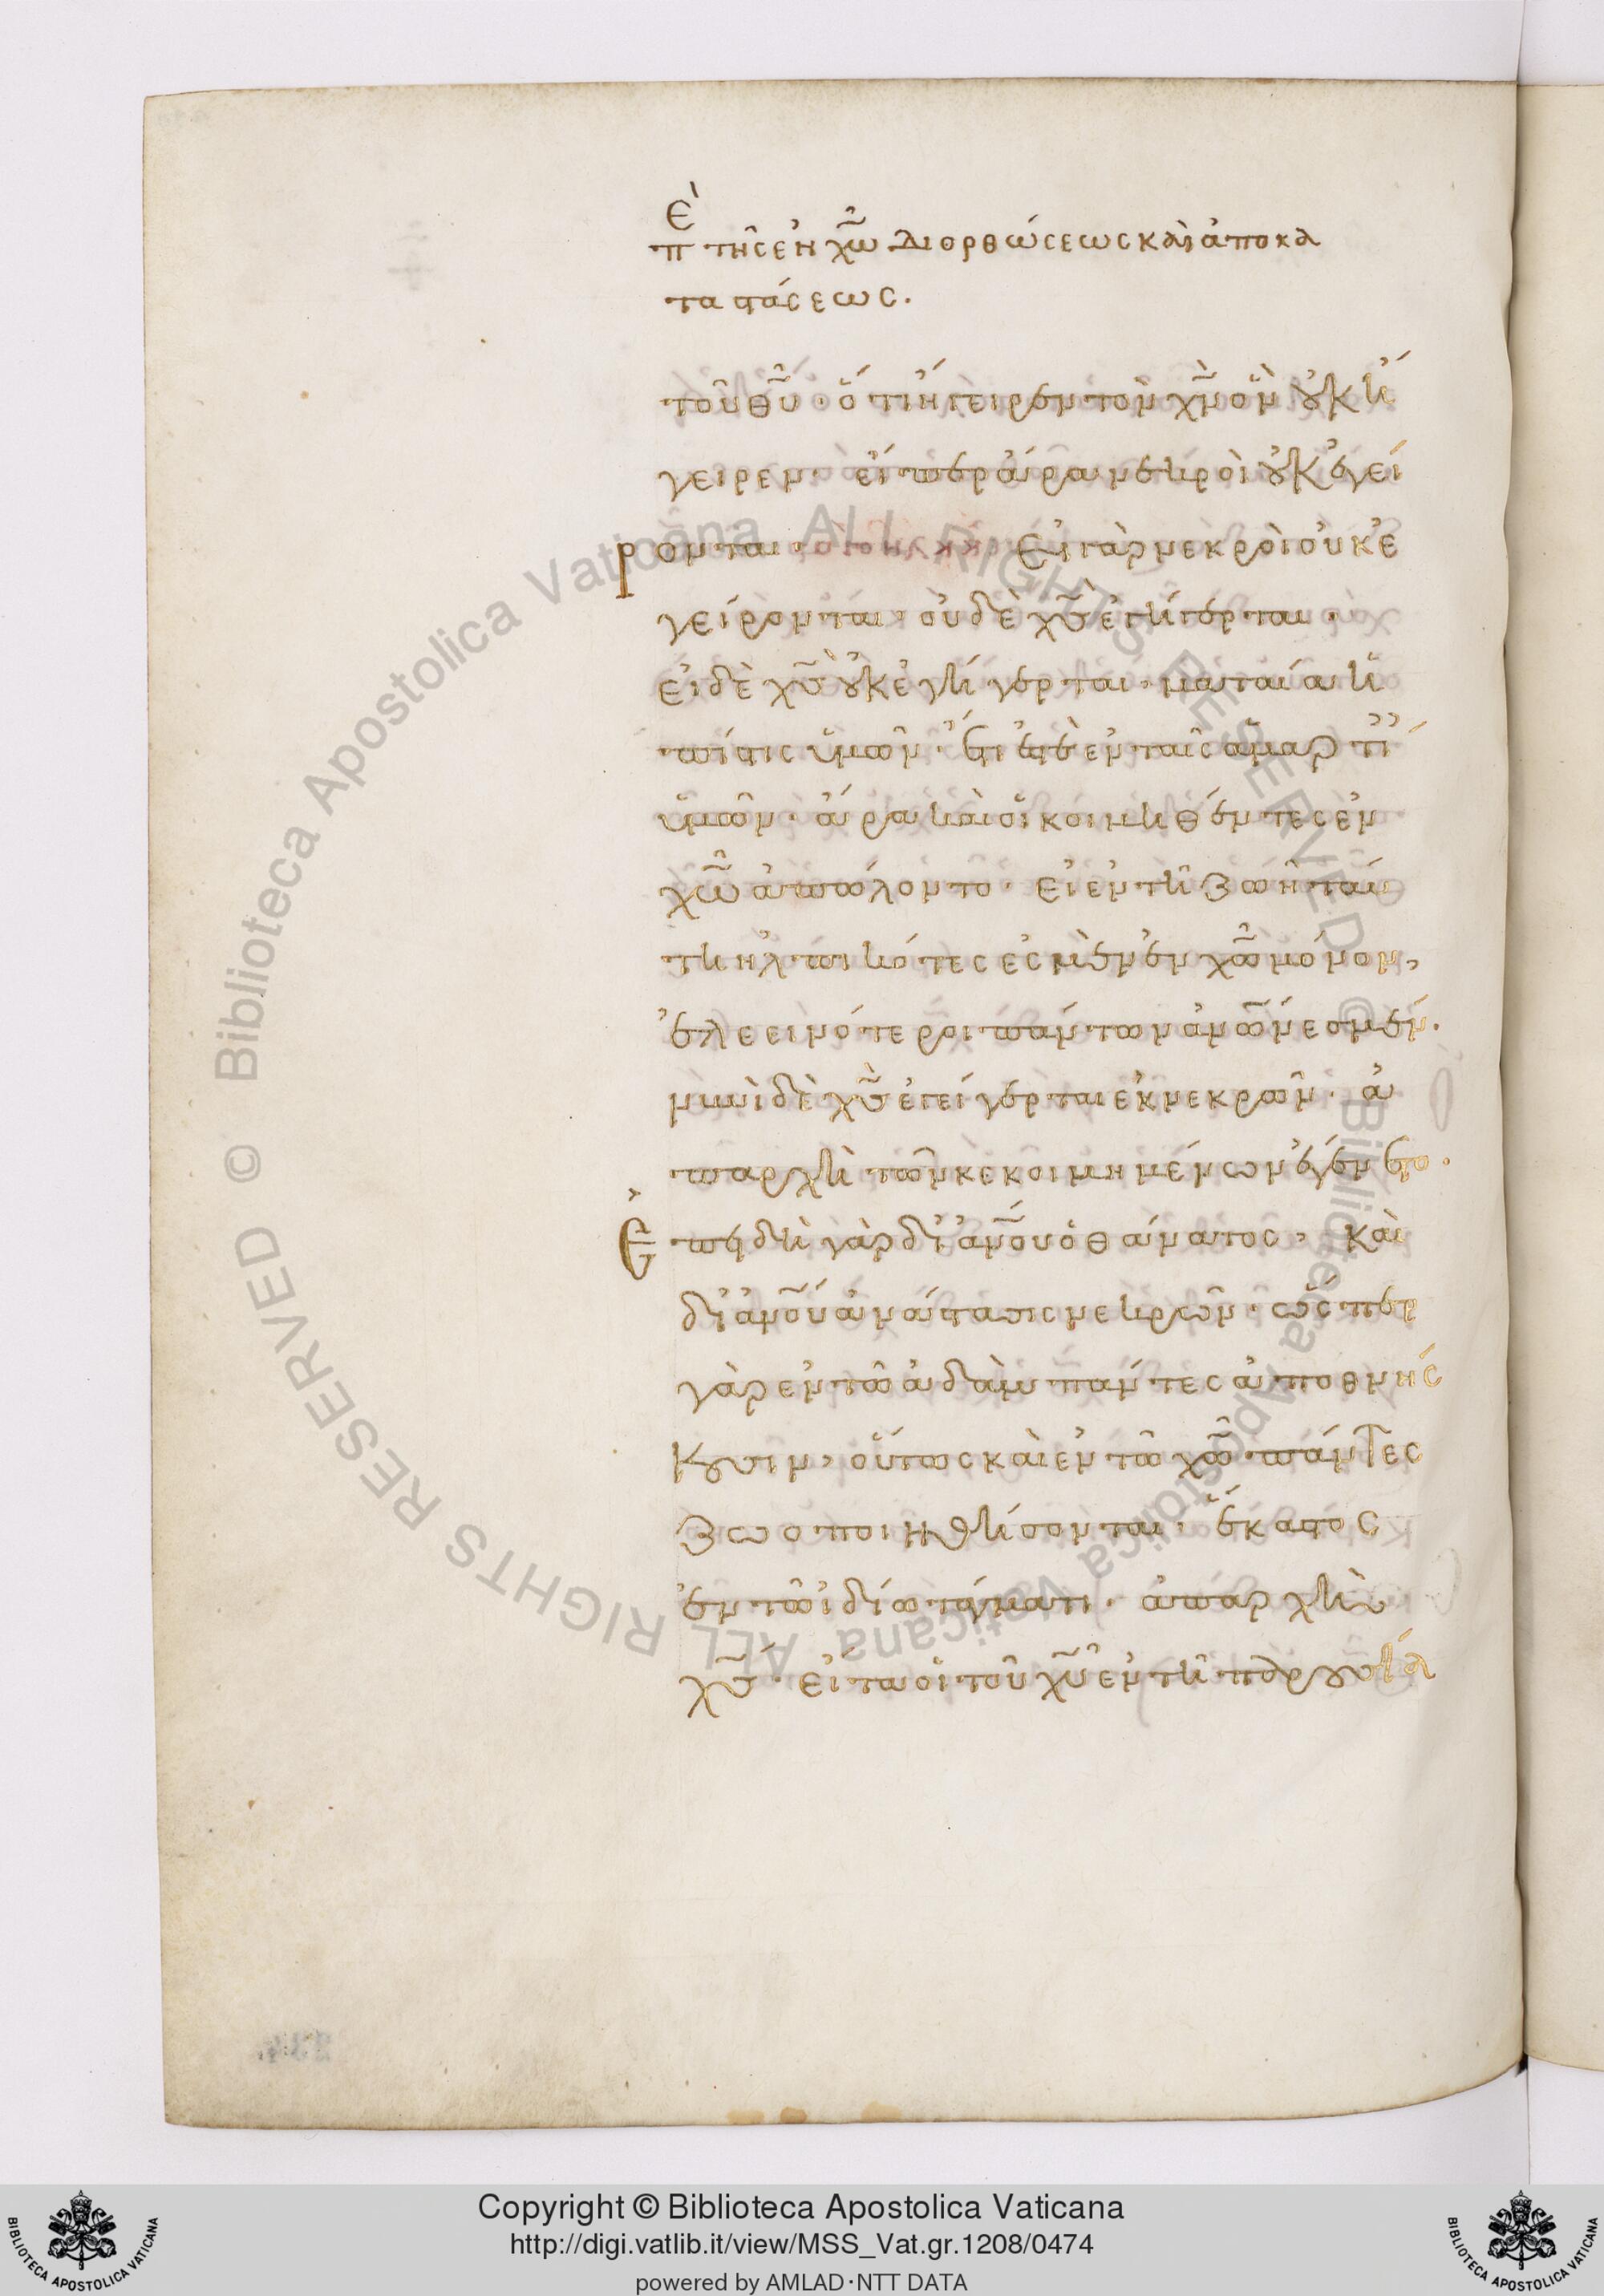 Ἐπ τῆς ἐν χω διορθώσεως καὶ ἀποκα
ταστάσεως.
τοῦ θυ· ὅτι ἤγειρεν τὸν χν ὃν οὐκ ἤ
γειρεν· εἴπερ ἄρα νεκροὶ οὐκ ἐγεί
ρονται· Εἰ γὰρ νεκροὶ οὐκ ἐ
γείρονται· οὐδὲ χς ἐγήγερται·
εἰ δὲ χς οὐκ ἐγήγερται· ματαία ἡ
πίστις ὑμῶν· ἔτι ἐστὲ ἐν ταῖς ἁμαρτί
ὑμῶν· ἄρα καὶ οἱ κοιμηθέντες ἐν
χω ἀπώλοντο· Εἰ ἐν τῇ ζωῇ ταύ
τῃ ἠλπικότες ἐσμὲν ἐν χω μόνον,
ἐλεεινότεροι πάντων ανων ἐσμέν.
νυνὶ δὲ χς ἐγείγερται ἐκ νεκρῶν· ἀ
παρχὴ τῶν κεκοιμημένων ἐγένετο·
Ἐπειδὴ γὰρ δι' ανου ὁ θάνατος, καὶ
δι' ανου ἀνάστασις νεκρῶν· ὥσπερ
γὰρ ἐν τῶ ἀδὰμ πάντες ἀποθνήσ
κουσιν, οὕτως καὶ ἐν τῶ χω πάντες
ζωοποιηθήσονται· ἕκαστος
ἐν τῶ ἰδίω τάγματι· ἀπαρχὴ
χς· εἶτα οἱ τοῦ χυ ἐν τῇ παρουσία
Copyright © Biblioteca Apostolica Vaticana
http://digi.vatlib.it/view/MSS_Vat.gr.1208/0474
powered by AMLAD·NTT DATA
BIBLIOTECA APOSTOLICA VATICANA
BIBLIOTECA APOSTOLICA VATICANA
© Biblioteca Apostolica Vaticana ALL RIGHTS RESERVED
© Biblioteca Apostolica Vaticana ALL RIGHTS RESERVED